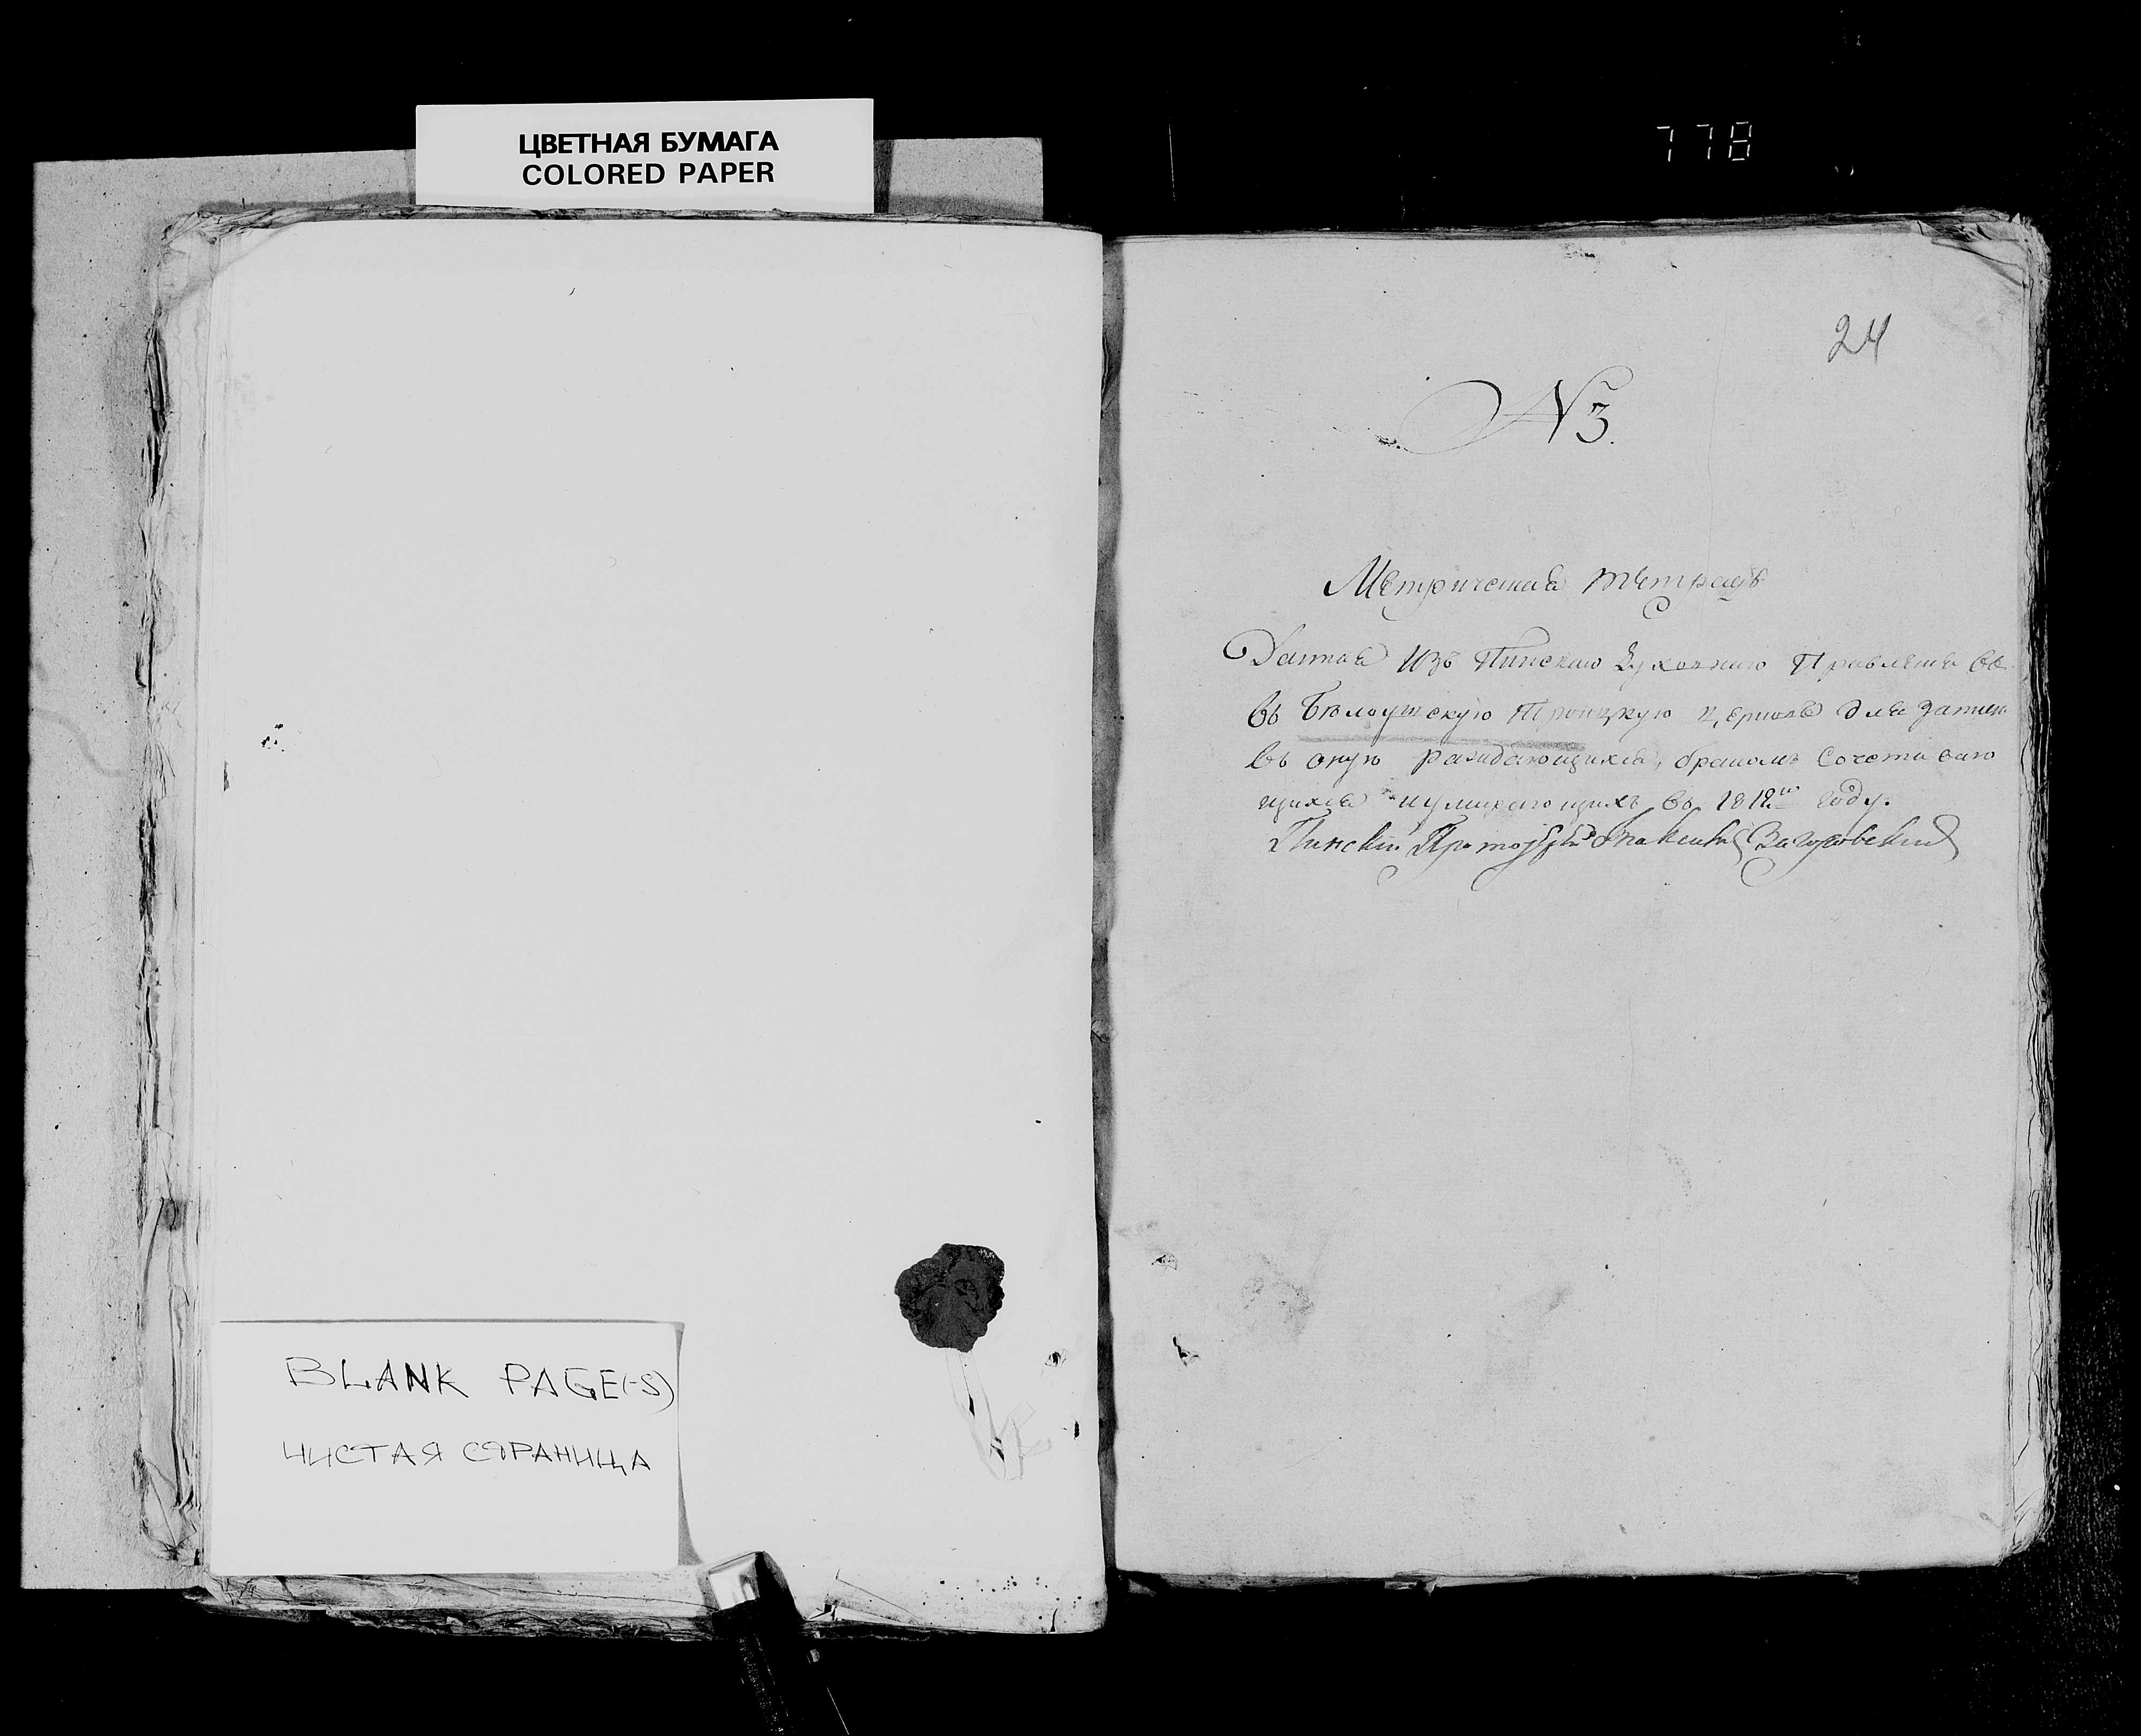 ЦВЕТНАЯ БУМАГА
COLORED PAPER
778
24
№ 3.
Метрическая тетрадь
Данная изъ Пинскаго Духовнаго Правленія
въ Бѣлоушскую Троицкую церковь для записи
въ оную раждающихся, бракомъ сочетаваю
щихся и умирающихъ въ 1812м году.
Пинскій
BLANK PAGE(-S)
ЧИСТАЯ СТРАНИЦА